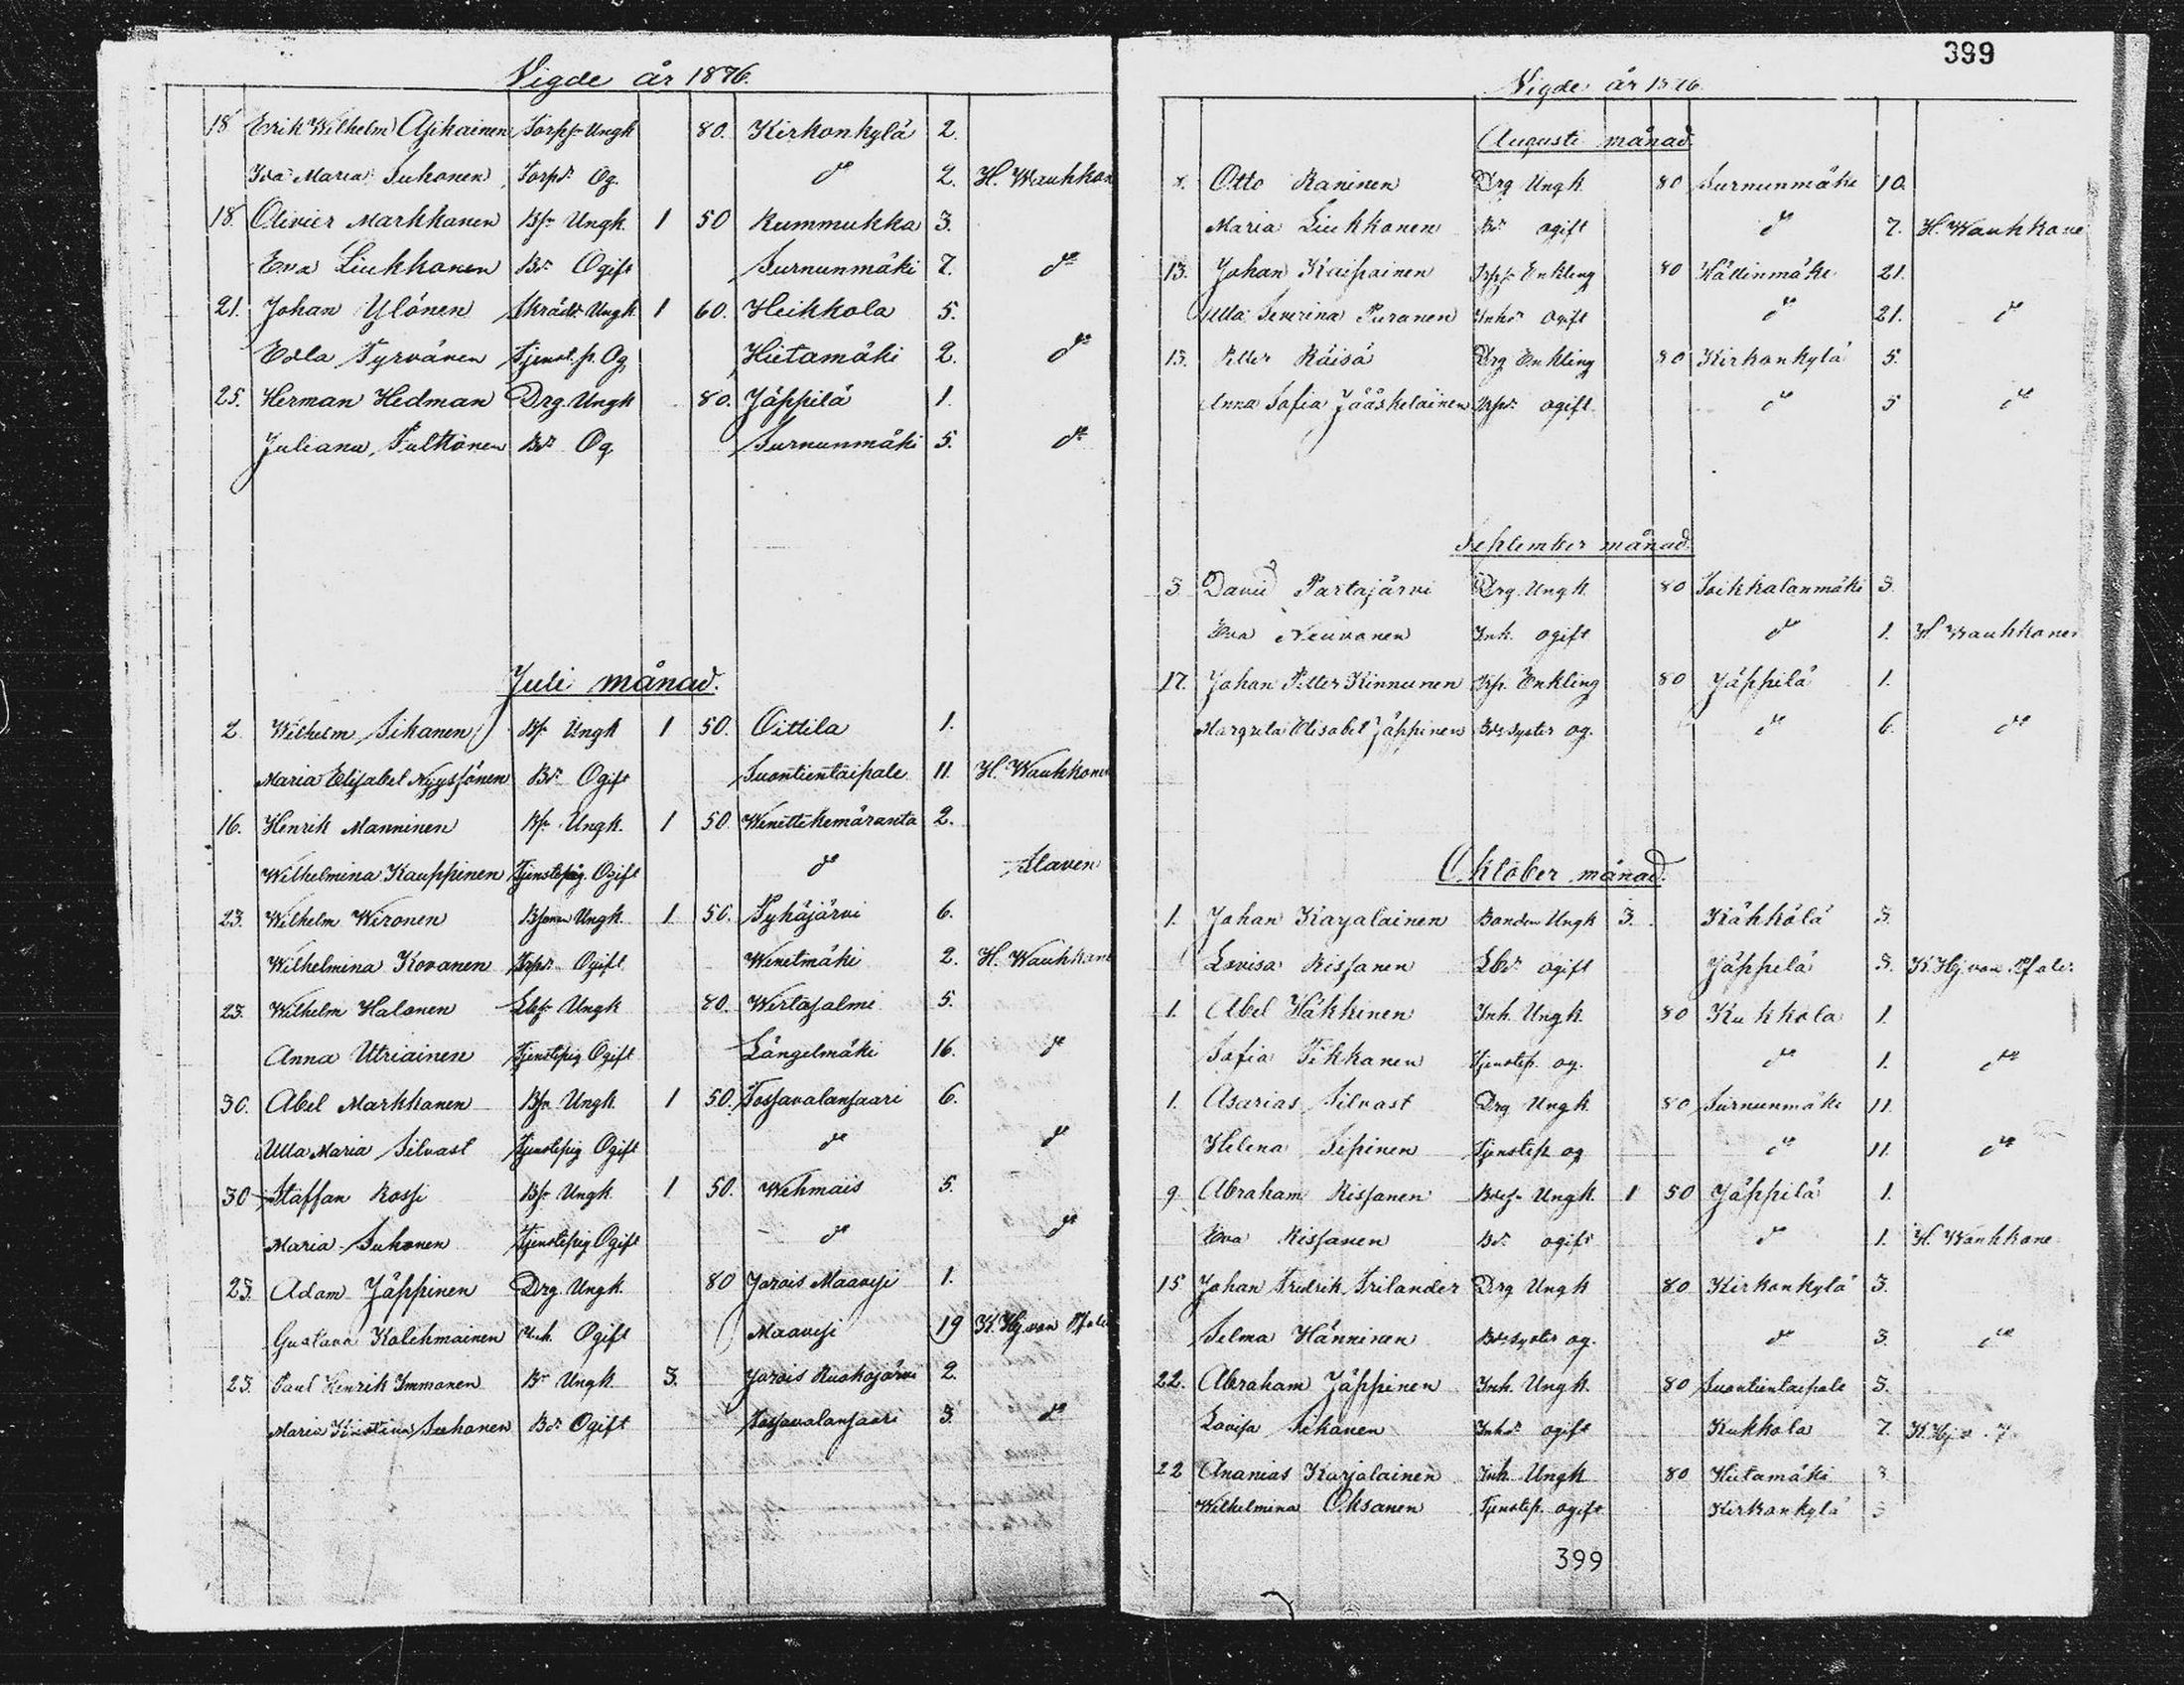 Vigde år 1876.
18 Erik Wilhelm Asikainen Torpsn Ungk 80. Kirkonkylä 2.
Ida Maria Suhonen Torpdr Og. do 2. H. Waukkon
18. Olivier Markkanen Bsn Ungk. 1 50 Rummukka 3.
Eva Liukkonen Bdr Ogift Surnunmäki 7. do
21. Johan Ylönen Skrädd. Ungk 1 60. Heikkola 5.
Edla Tyrvänen Tjenst.p. Og. Hietamäki 2. do
25. Herman Hedman Drg. Ungk 80. Jäppilä 1.
Juliana Pulkkönen Bdr Og. Surnunmäki 5. do
Juli månad.
2. Wilhelm Sikanen Bsn Ungk 1 50. Oittila 1.
Maria Elisabet Nyyssönen Bdr Ogift Suontientaipale 11. H. Waukkone
16. Henrik Manninen Bsn Ungk. 1 50. Wenettekemäranta 2.
Wilhelmina Kauppinen Tjenstepig. Ogift do Slaven
23. Wilhelm Wironen Bsonen Ungk. 1. 50. Pyhäjärvi 6.
Wilhelmina Kovanen Trpdr Ogift Wenetmäki 2. H. Waukkane
23. Wilhelm Halonen Lbsn Ungk 80. Wirtasalmi 5.
Anna Utriainen Tjenstepig Ogift Längelmäki 16. do
30. Abel Markkanen Bsn Ungk. 1 50. Tossavalansaari 6.
Ulla Maria Silvast Tjenstepig Ogift do do
30 Staffan Rossi Bsn Ungk. 1. 50. Wehmais 5.
Maria Suhonen Tjenstepig Ogift do do
23. Adam Jäppinen Drg. Ungk. 80 Jorois Maavesi 1.
Gustava Kolehmainen Inh. Ogift Maavesi 19 K. Hj. von Pfale
23. Paul Henrik Immonen Bn Ungk. 3. Jorois Ruokojärvi 2.
Maria Kristina Suhonen Bdr Ogift Tossavalansaari 3. do
399
Vigde år 1876.
Augusti månad.
Otto Raninen Drg Ungk. 80 Surnunmäki 10.
Maria Liukkonen Bdr ogift do 7. H. Waukkone
13. Johan Kaipainen Trpsn Enkling 80 Hällinmäki 21.
Ulla Severina Puranen Inhdr ogift do 21. do
13. Petter Räisä Drg Enkling 80 Kirkonkylä 5.
Anna Sofia Jääskeläinen Trpdr ogift do 5 do
September månad.
3. David Partajärvi Drg. Ungk. 80 Soikkalanmäki 3.
Eva Neuvonen Inh. ogift do 1. H Waukkonen
17. Johan Petter Kinnunen Trp. Enkling 80 Jäppilä 1.
Margreta Elisabet Jäppinen Bdessyster og. do 6. do
Oktober månad.
1. Johan Karjalainen Bonden Ungk 3. Kähkölä 3.
Lovisa Rissanen Lbdr ogift Jäppilä 3. K. Hj. von Pfaler
1. Abel Häkkinen Inh. Ungk. 80 Kukkola 1.
Sofia Tikkanen Tjenstep. og. do 1. do
1. Asarias Silvast Drg Ungk. 80 Surnunmäki 11.
Helena Sepinen Tjenstep. og do 11. do
9. Abraham Rissanen Bdesn Ungk. 1 50 Jäppilä 1.
Eva Rissanen Bdr ogift do 1. H. Waukkone
15 Johan Fredrik Frilander Drg Ungk 80 Kirkonkylä 3.
Selma Hänninen Bdessyster og. do 3. do
22. Abraham Jäppinen Inh. Ungk. 80 Suontientaipale 3.
Lovisa Sikanen Inhdr ogift Kukkola 7. K. Hj. v.
22 Ananias Karjalainen Inh. Ungk 80 Hietamäki 3
Wilhelmina Oksanen Tjenstep. ogift Kirkonkylä 3
399